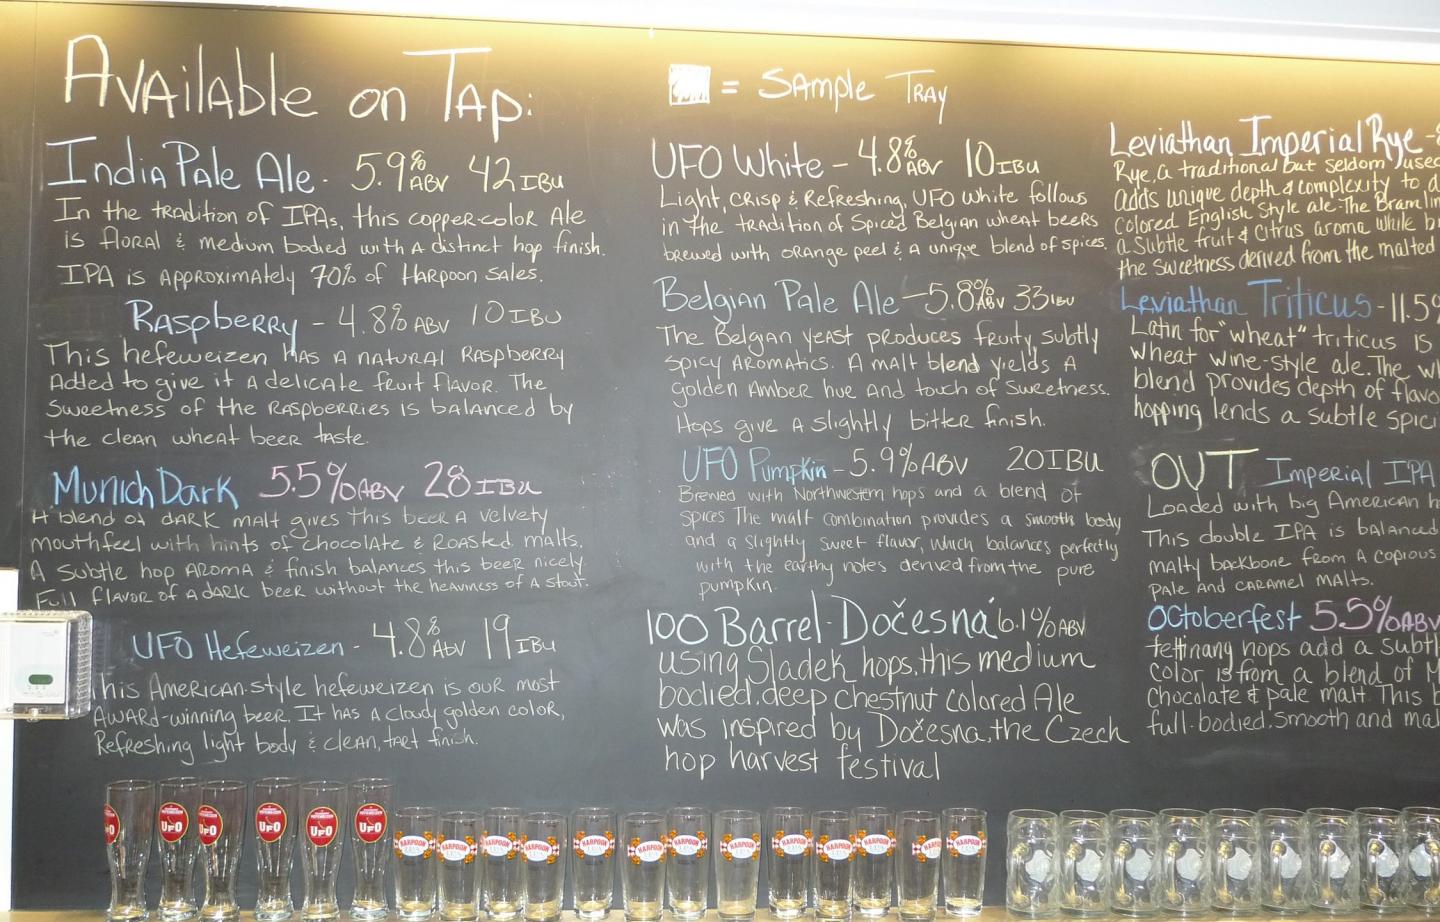 Available on Tap:
India Pale Ale - 5.9% ABV 42 IBU
In the tradition of IPAs, this copper-color Ale
is floral & medium bodied with a distinct hop finish.
IPA is approximately 70% of Harpoon sales.
Raspberry - 4.8% ABV 10 IBU
This hefeweizen has a natural raspberry
Added to give it a delicate fruit flavor. The
sweetness of the raspberries is balanced by
the clean wheat beer taste.
Munich Dark 5.5% ABV 28 IBU
A blend of dark malt gives this beer a velvety
mouthfeel with hints of chocolate & roasted malts.
A subtle hop aroma & finish balances this beer nicely.
Full flavor of a dark beer without the heaviness of a stout.
UFO Hefeweizen - 4.8% ABV 19 IBU
This American-style hefeweizen is our most
award-winning beer. It has a cloudy golden color,
Refreshing light body & clean, tart finish.
= Sample Tray
UFO White - 4.8% ABV 10 IBU
Light, crisp & Refreshing, UFO white follows
in the tradition of Spiced Belgian wheat beers
brewed with orange peel & a unique blend of spices.
Belgian Pale Ale - 5.8% ABV 33 IBU
The Belgian yeast produces fruity, subtly
spicy aromatics. A malt blend yields a
golden Amber hue and touch of sweetness.
Hops give a slightly bitter finish.
UFO Pumpkin - 5.9% ABV 20 IBU
Brewed with Northwestern hops and a blend of
spices The malt combination provides a smooth body
and a slightly sweet flavor, which balances perfectly
with the earthy notes derived from the pure
pumpkin.
100 Barrel - Dočesná 6.1% ABV
using Sladek hops, this medium
bodied, deep chestnut colored Ale
was inspired by Dočesna, the Czech
hop harvest festival
Leviathan Imperial Rye -
Rye, a traditional but seldom used
adds unique depth & complexity to
colored English Style ale. The
a subtle fruit & citrus aroma while
the sweetness derived from the malted
Leviathan Triticus - 11.5%
Latin for "wheat" triticus is
wheat wine-style ale. The
blend provides depth of
hopping lends a subtle
OVT Imperial IPA
Loaded with big American
This double IPA is balanced
malty backbone from a copious
pale and caramel malts.
Octoberfest 5.5% ABV
tettnang hops add a
color is from a blend of
chocolate & pale malt. This
full-bodied, smooth and
UFO
UFO
UFO
UFO
UFO
HARPOON IPA
HARPOON IPA
HARPOON IPA
HARPOON
HARPOON
HARPOON
HARPOON
HARPOON
HARPOON
HARPOON
HARPOON
HARPOON